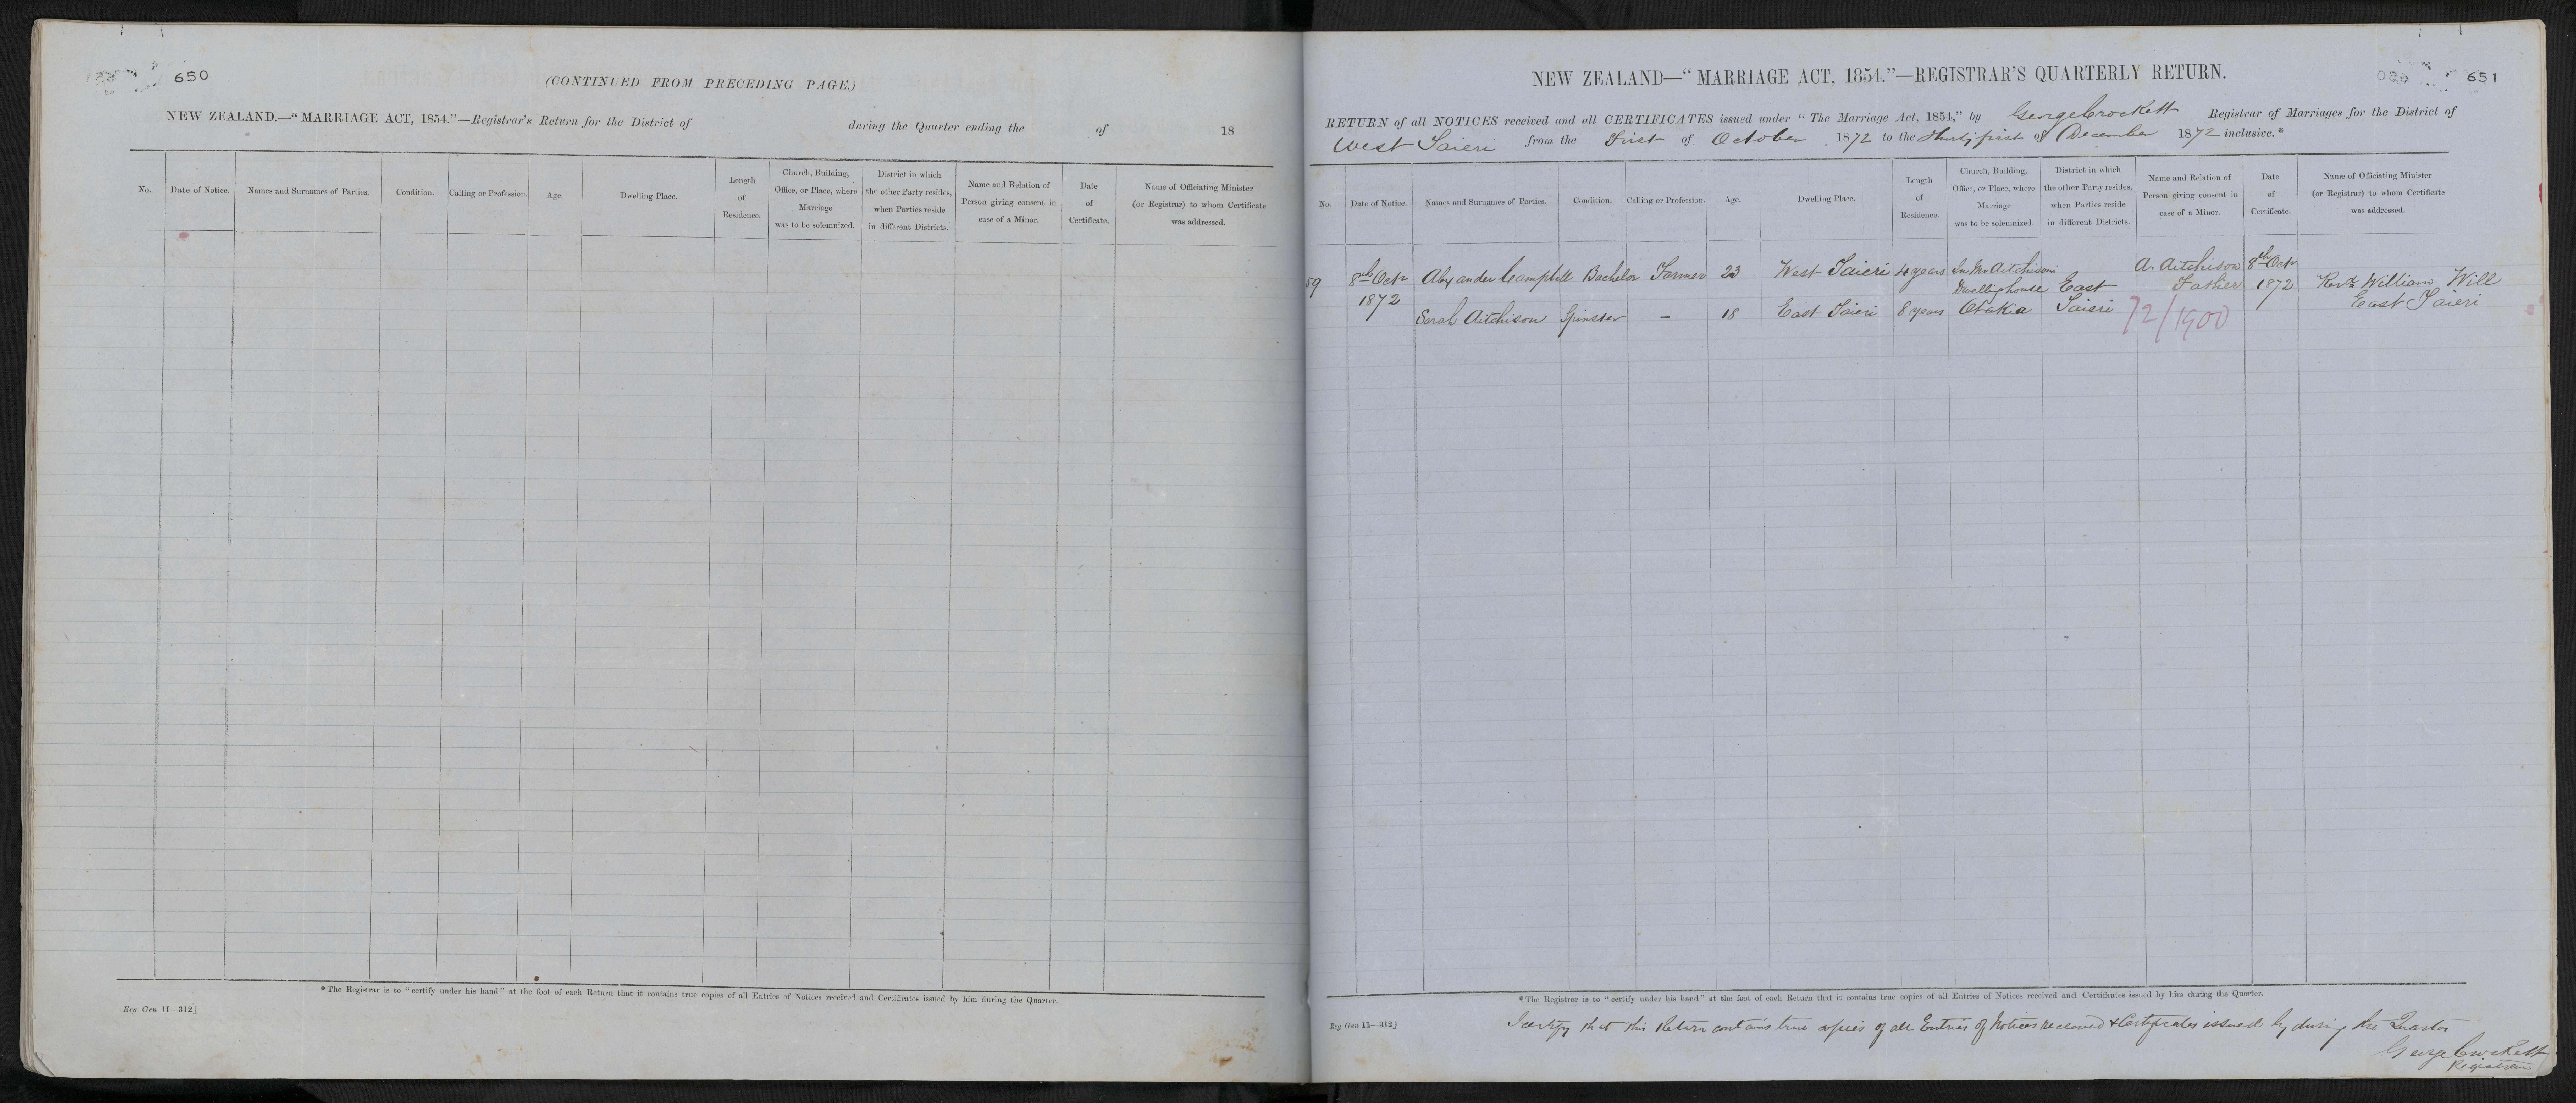 650
(CONTINUED FROM PRECEDING PAGE.)
NEW ZEALAND.—"MARRIAGE ACT, 1854."—Registrar's Return for the District of during the Quarter ending the of 18
No.
Date of Notice.
Names and Surnames of Parties.
Condition.
Calling or Profession.
Age.
Dwelling Place.
Length
of
Residence.
Church, Building,
Office, or Place, where
Marriage
was to be solemnized.
District in which
the other Party resides,
when Parties reside
in different Districts.
Name and Relation of
Person giving consent in
case of a Minor.
Date
of
Certificate.
Name of Officiating Minister
(or Registrar) to whom Certificate
was addressed.
*The Registrar is to "certify under his hand" at the foot of each Return that it contains true copies of all Entries of Notices received and Certificates issued by him during the Quarter.
Reg Gen 11—312]
651
NEW ZEALAND—"MARRIAGE ACT, 1854."—REGISTRAR'S QUARTERLY RETURN.
RETURN of all NOTICES received and all CERTIFICATES issued under "The Marriage Act, 1854," by George Crockett Registrar of Marriages for the District of
West Taieri from the First of October 1872 to the Thirty first of December 1872 inclusive.*
No.
Date of Notice.
Names and Surnames of Parties.
Condition.
Calling or Profession.
Age.
Dwelling Place.
Length
of
Residence.
Church, Building,
Office, or Place, where
Marriage
was to be solemnized.
District in which
the other Party resides,
when Parties reside
in different Districts.
Name and Relation of
Person giving consent in
case of a Minor.
Date
of
Certificate.
Name of Officiating Minister
(or Registrar) to whom Certificate
was addressed.
59
8th Octr
1872
Alexander Campbell Bachelor Farmer 23 West Taieri 4 years
Sarah Aitchison Spinster – 18 East Taieri 8 years
In Mr Aitchisons
Dwelling house
Otakia
East
Taieri
A. Aitchison
Father
72/1900
8th Octr
1872
Revd William Will
East Taieri
*The Registrar is to "certify under his hand" at the foot of each Return that it contains true copies of all Entries of Notices received and Certificates issued by him during the Quarter.
Reg Gen 11—312]
I certify that this Return contains true copies of all Entries of Notices received & Certificates issued by during the Quarter
George Crockett
Registrar